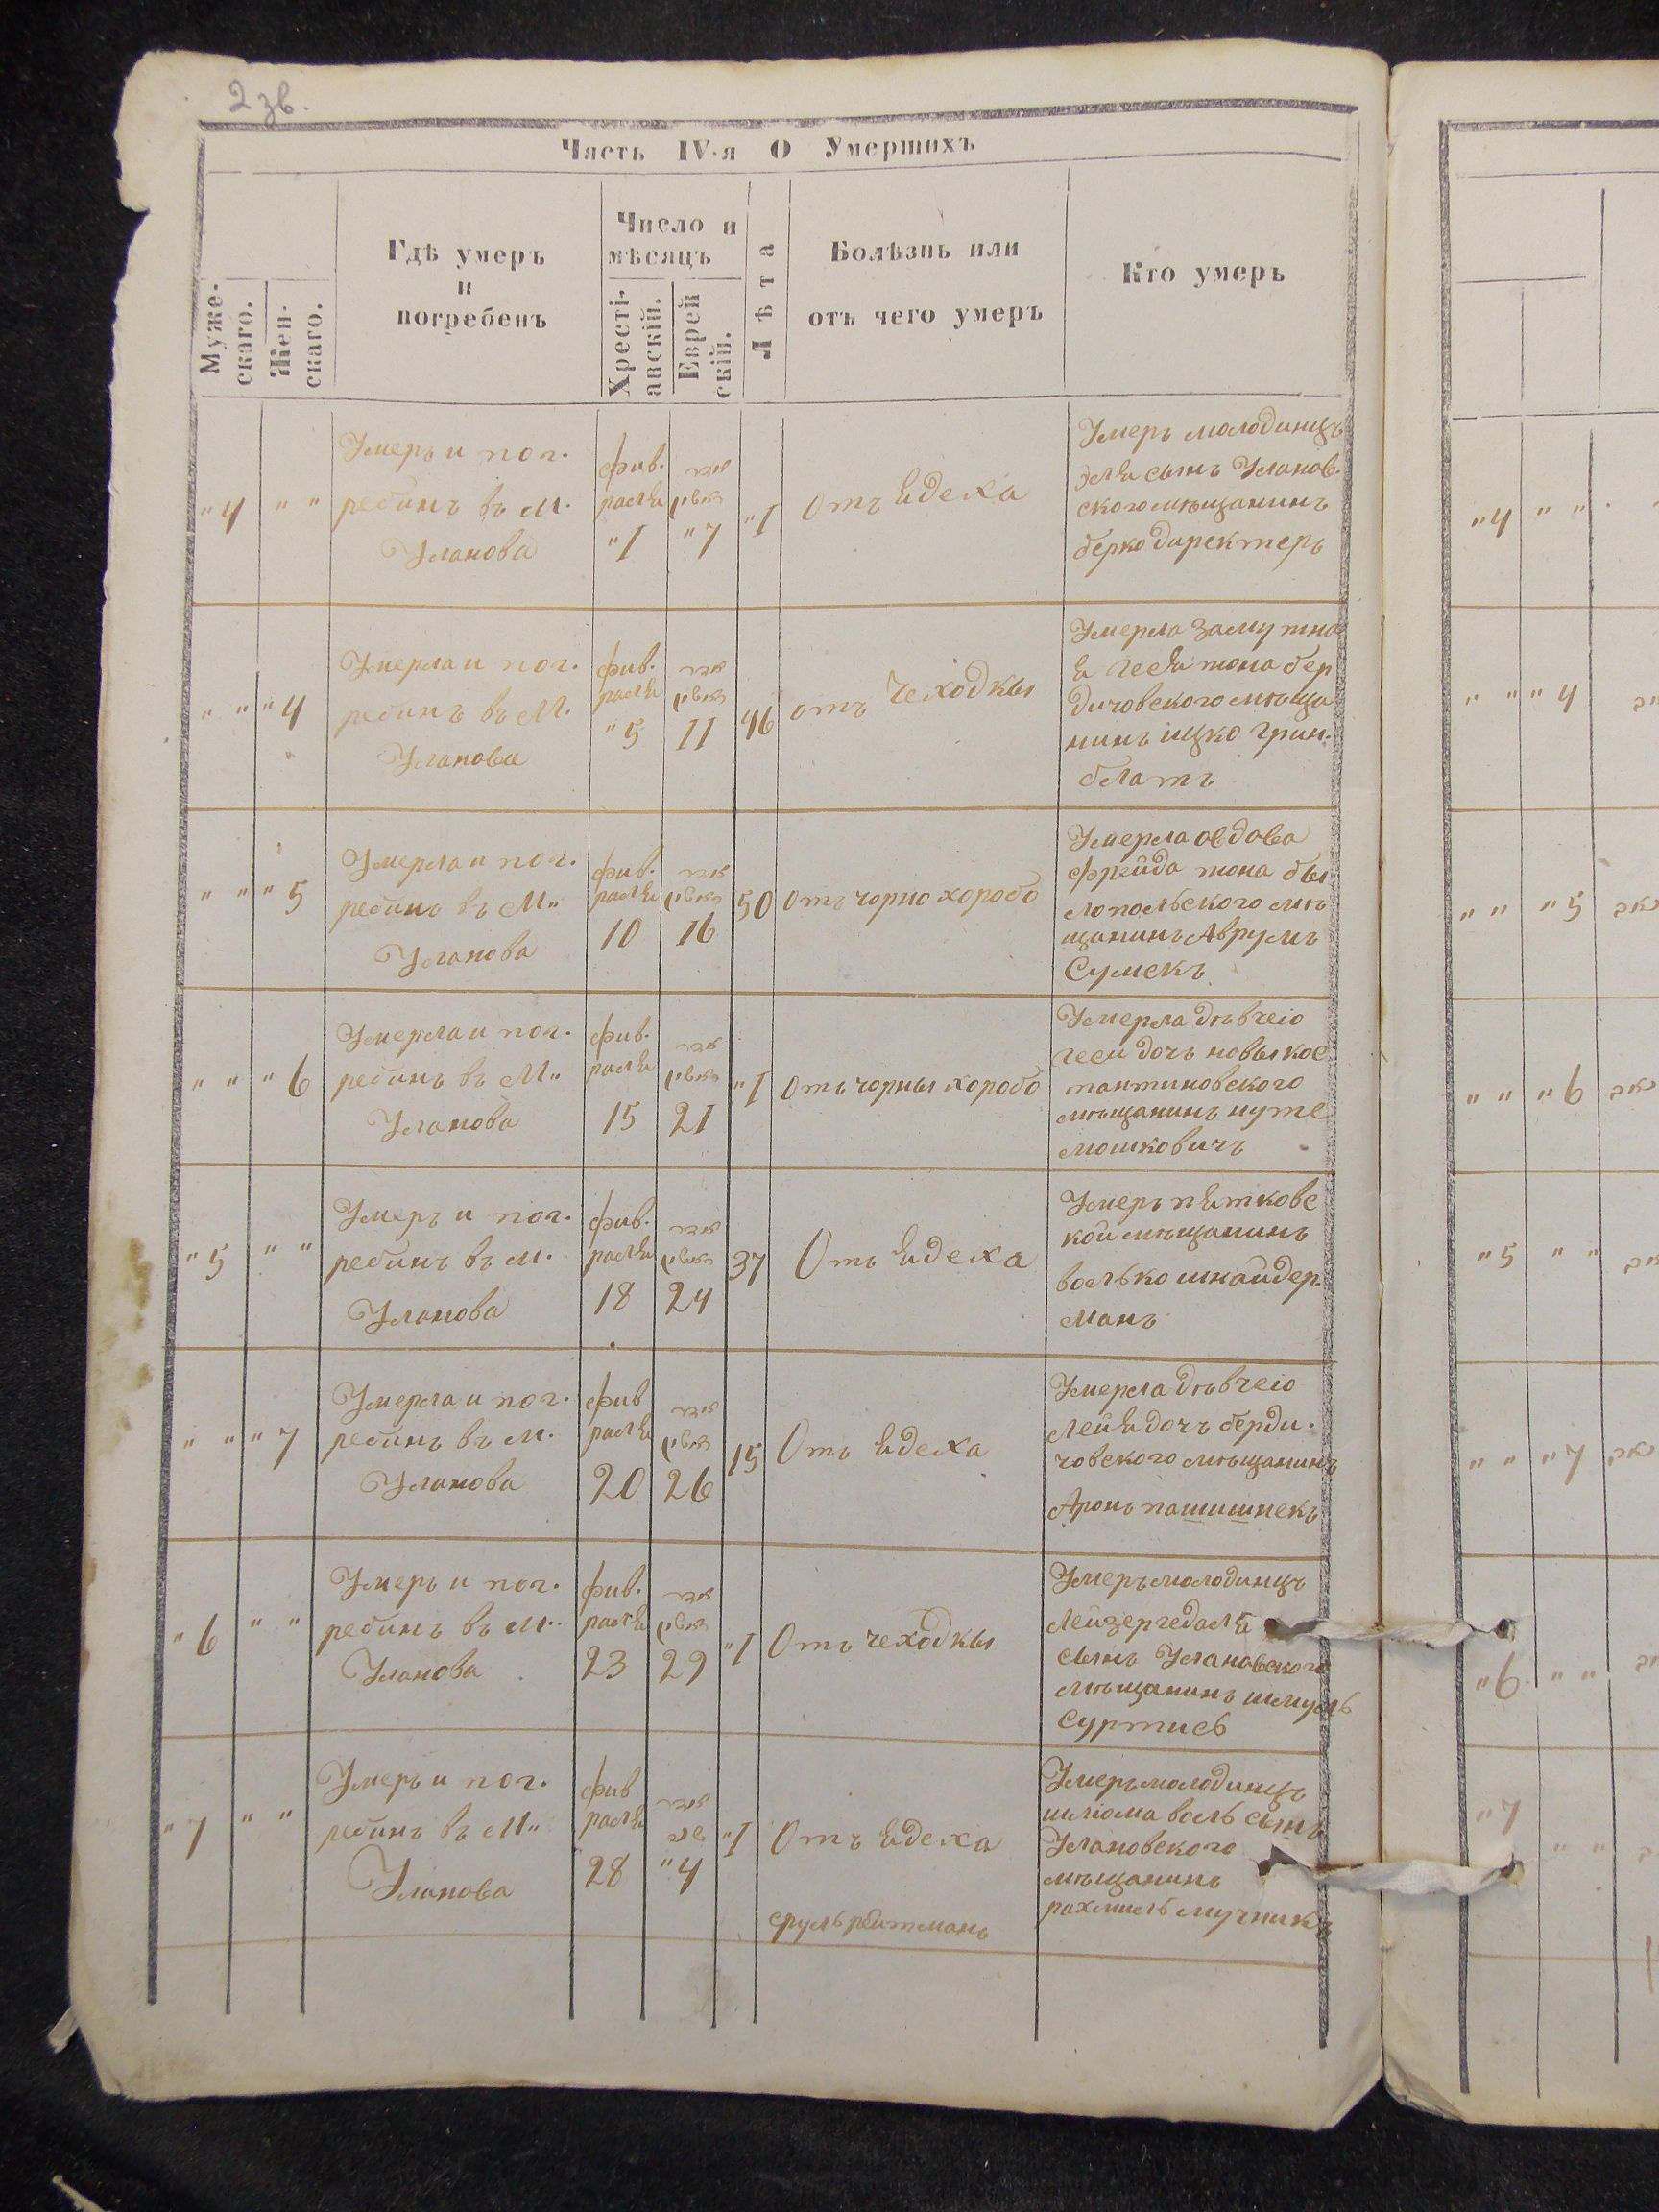 2 зв.
Часть IV-я О Умершихъ
Муже-
скаго.
Жен-
скаго.
Гдѣ умеръ
и
погребенъ
Число и
мѣсяцъ
Христі-
анскій.
Еврей
скій.
Лѣта
Болѣзнь или
отъ чего умеръ
Кто умеръ
"4 " "
Умеръ и пог.
ребинъ въ М.
Уланова
фив.
раля
"1
"7
"1
Отъ ядеха
Умеръ молодинцъ
эля сынъ Уланов.
ского мѣщанинъ
берко директеръ
" " "4
Умерла и пог.
ребинъ въ М.
Уланова
фив.
раля
"5
11
46
отъ чеходкы
Умерла замужна
я геся жона бер
дичовского мѣща
нинъ ицко грин.
блатъ
" " "5
Умерла и пог.
ребинъ въ М..
Уланова
фив.
раля
10
16
50
Отъ чорно хоробо
Умерла овдова
фрейда жона бы
лопольского мѣ
щанинъ Аврумъ
Сумекъ
" " "6
Умерла и пог.
ребинъ въ М..
Уланова
фив.
раля
15
21
"1
Отъ чорны хоробо
Умерла дѣвчею
геси дочъ новы кос
тантиновского
мѣщанинъ нуте
мошковичъ
"5 " "
Умеръ и пог.
ребинъ въ М.
Уланова
фив.
раля
18
24
37
Отъ ядеха
Умеръ пятковс
кои мѣщанинъ
волько шнайдер.
манъ
" " "7
Умерла и пог.
ребинъ въ М.
Уланова
фив
раля
20
26
15
Отъ ядеха
Умерла дѣвчею
Лейя дочъ берди.
човского мѣщанинъ
Аронъ пашишнекъ
"6 " "
Умеръ и пог.
ребинъ въ М..
Уланова
фив.
раля
23
29
"1
Отъ чеходкы
Умеръ молодинцъ
Лейзер гедаля
сынъ Улановского
мѣщанинъ шмуль
Суртисъ
"7 " "
Умеръ и пог.
ребинъ въ М..
Уланова
фив
раля
28
"4
"1
Отъ ядеха
Умеръ молодинцъ
шліома воль сынъ
Улановского
мѣщанинъ
рахмиль мучникъ
сруль рейтманъ
"4 " "
" " "4
" " "5
" " "6
"5 " "
" " "7
"6 " "
"7 " "